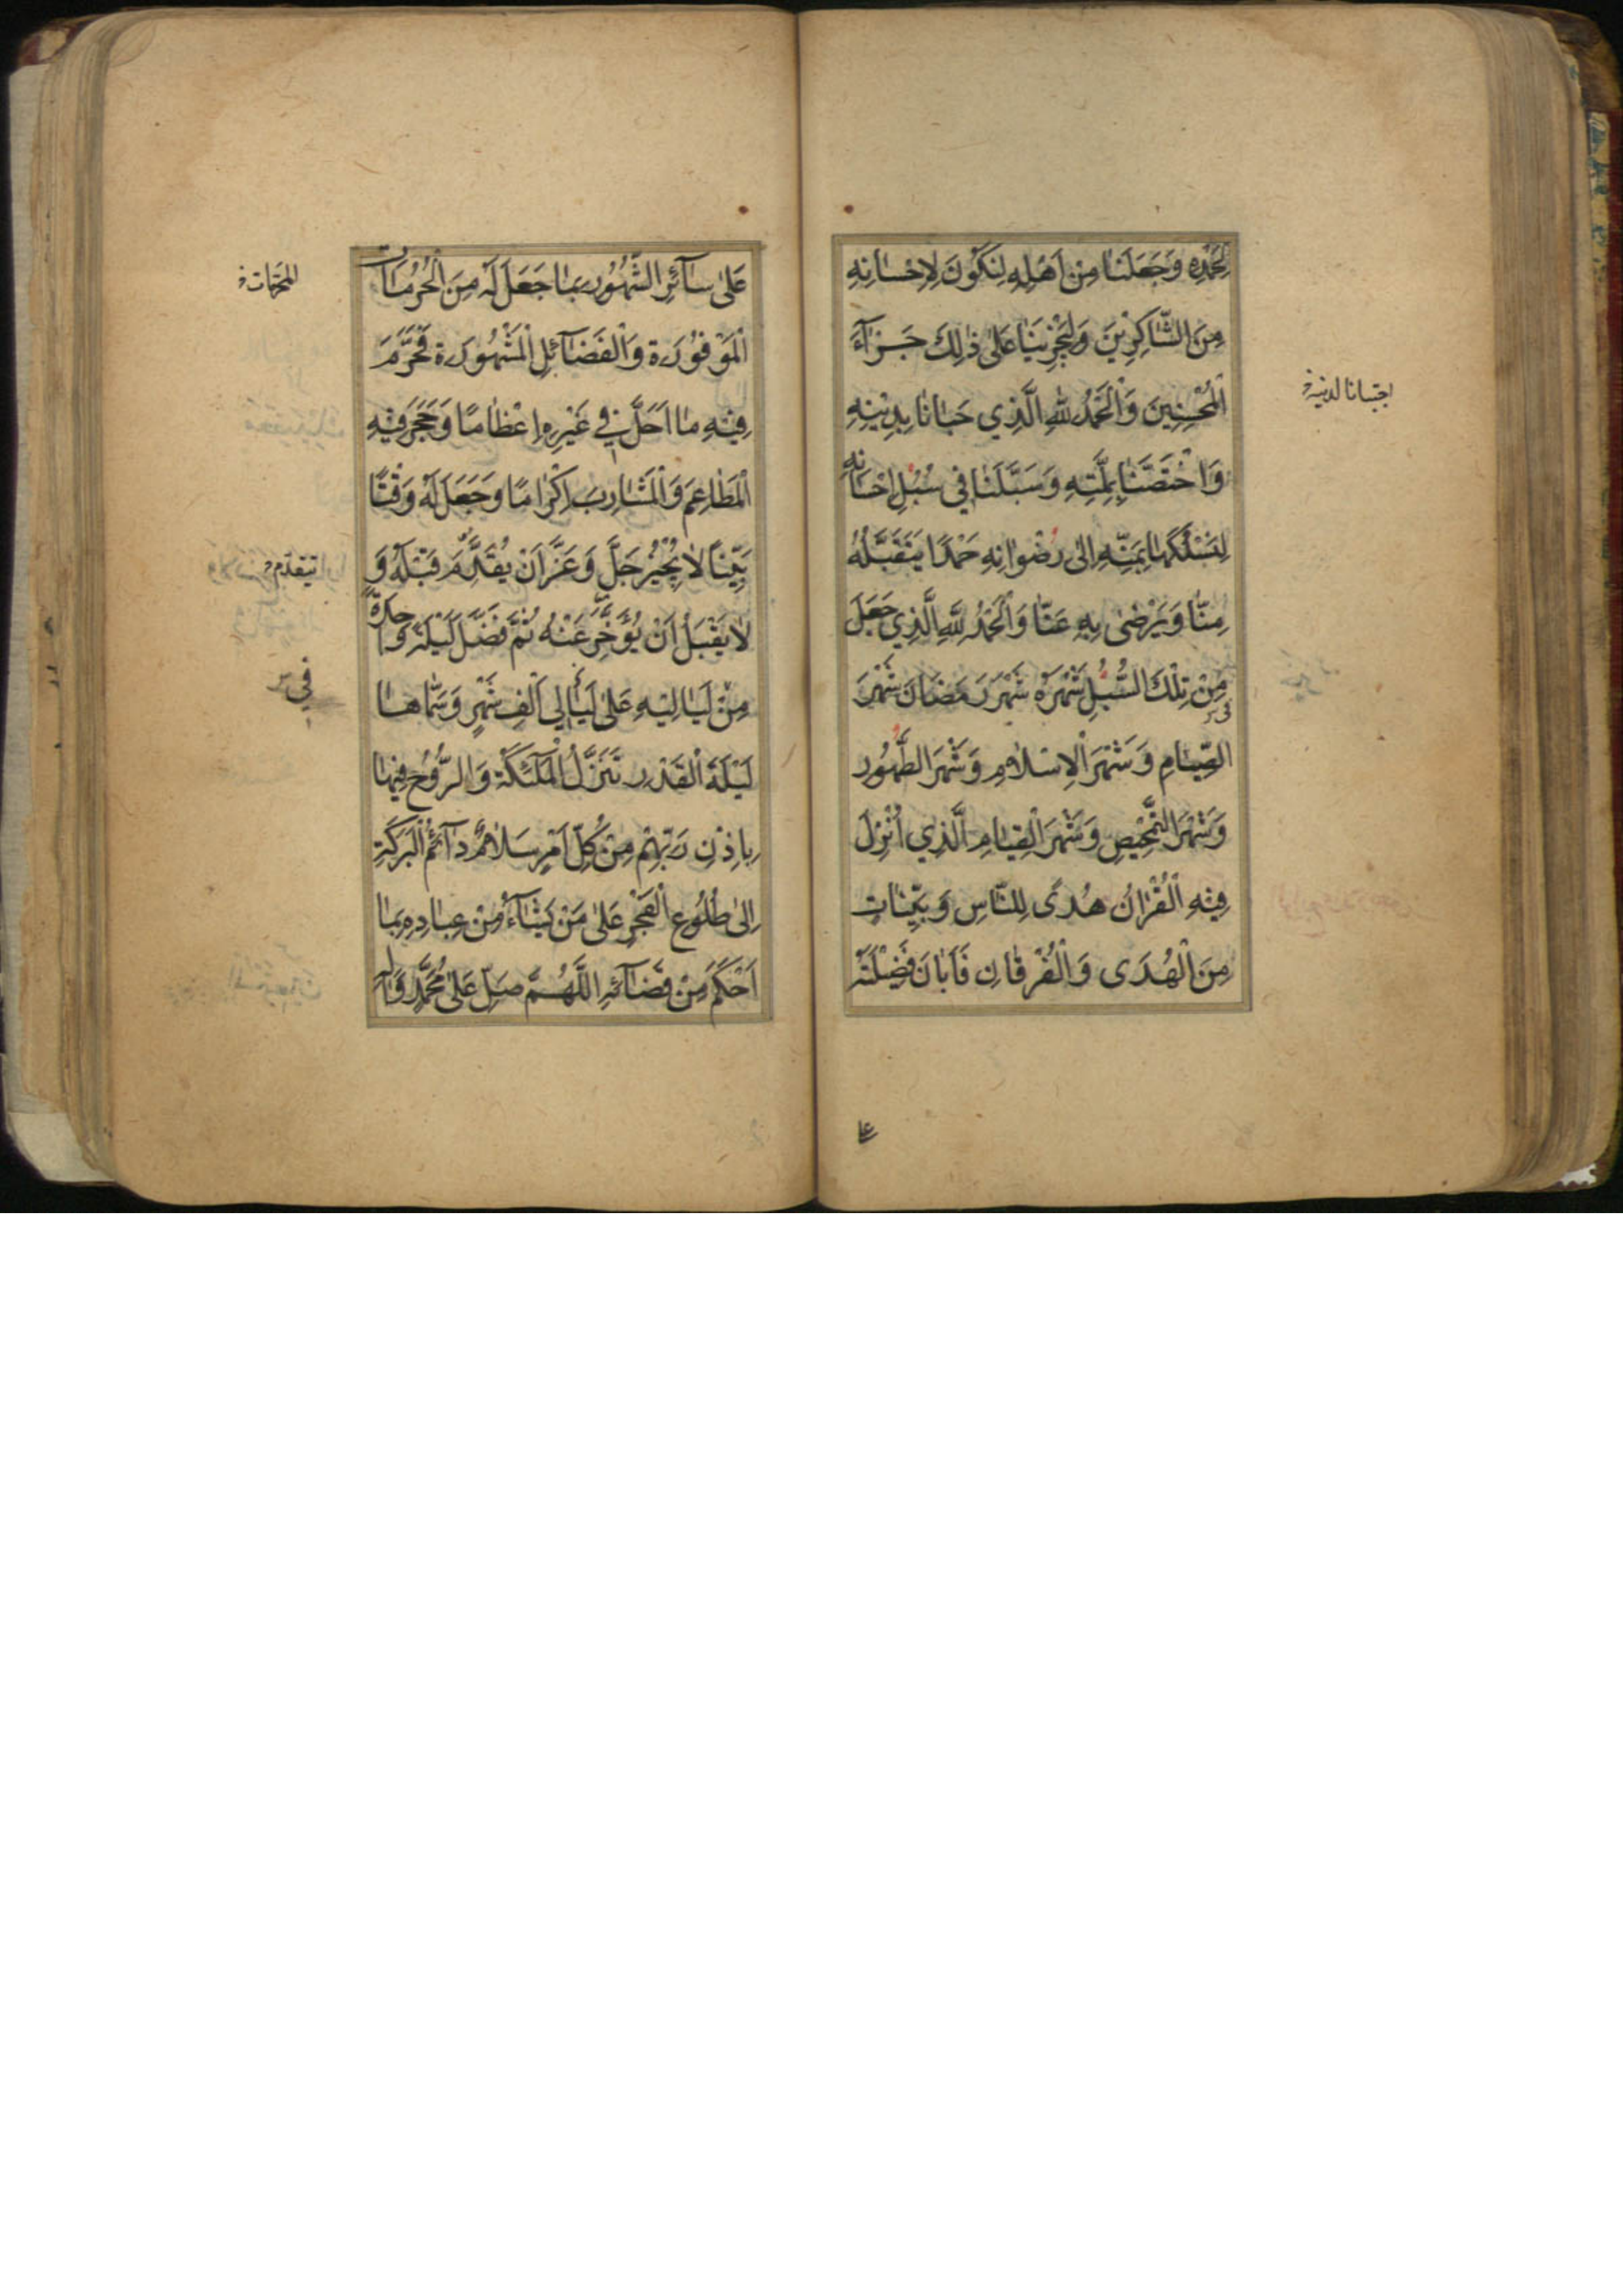 لِحَمْدِهِ وَجَعَلَنَا مِنْ اَهْلِهِ لِنَكُونَ لِاِحْسَانِهِ
مِنَ الشَّاكِرِيْنَ وَلِيَجْزِيَنَا عَلٰى ذٰلِكَ جَزَآءَ
الْمُحْسِنِينَ وَالْحَمْدُ لِلّٰهِ الَّذِي حَبَانَا بِدِيْنِهِ
اجتبانا لدينه
وَاخْتَصَّنَا بِمِلَّتِهِ وَسَبَّلَنَا فِي سُبُلِ اِحْسَانِهِ
لِنَسْلُكَهَا بِمَنِّهِ اِلٰى رُضْوَانِهِ حَمْدًا يَتَقَبَّلُهُ
مِنَّا وَيَرْضٰى بِهِ عَنَّا وَالْحَمْدُ لِلّٰهِ الَّذِي جَعَلَ
مِنْ تِلْكَ السُّبُلِ شَهْرَهُ شَهْرَ رَمَضَانَ شَهْرَ
الصِّيَامِ وَشَهْرَ الْاِسْلَامِ وَشَهْرَ الطَّهُورِ
وَشَهْرَ التَّمْحِيْصِ وَشَهْرَ الْقِيَامِ الَّذِي اُنْزِلَ
فِيْهِ الْقُرْاٰنُ هُدًى لِلنَّاسِ وَبَيِّنَاتٍ
مِنَ الْهُدَى وَالْفُرْقَانِ فَاَبَانَ فَضِيْلَتَهُ
عَلٰى سَآئِرِ الشُّهُورِ بِمَا جَعَلَ لَهُ مِنَ الْحُرُمَاتِ
المحرمات
الْمَوْفُوْرَةِ وَالْفَضَآئِلِ الْمَشْهُورَةِ فَحَرَّمَ
فِيْهِ مَا اَحَلَّ فِي غَيْرِهِ اِعْظَامًا وَحَجَرَ فِيْهِ
الْمَطَاعِمَ وَالْمَشَارِبَ اِكْرَامًا وَجَعَلَ لَهُ وَقْتًا
بَيِّنًا لَا يُجْيِزُ جَلَّ وَعَزَّ اَنْ يُقَدَّمَ قَبْلَهُ وَ
يتقدم
لَا يَقْبَلُ اَنْ يُؤَخَّرَ عَنْهُ ثُمَّ فَضَّلَ لَيْلَةً وَاحِدَةً
مِنْ لَيَالِيْهِ عَلٰى لَيَالِي اَلْفِ شَهْرٍ وَسَمَّاهَا
في
لَيْلَةَ الْقَدْرِ تَنَزَّلُ الْمَلٰٓئِكَةُ وَالرُّوْحُ فِيْهَا
بِاِذْنِ رَبِّهِمْ مِنْ كُلِّ اَمْرٍ سَلَامٌ دَآئِمُ الْبَرَكَةِ
اِلٰى طُلُوْعِ الْفَجْرِ عَلٰى مَنْ يَشَآءُ مِنْ عِبَادِهِ بِمَا
اَحْكَمَ مِنْ قَضَآئِهِ اَللّٰهُمَّ صَلِّ عَلٰى مُحَمَّدٍ وَاٰلِهِ